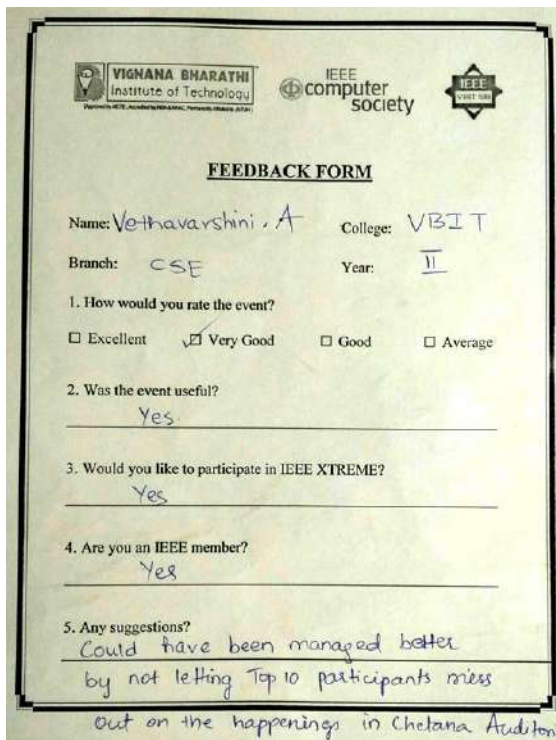 VIGNANA BHARATHI
Institute of Technology
IEEE
computer
society
IEEE
VBIT SB
FEEDBACK FORM
Name: Vethavarshini. A College: VBIT
Branch: CSE Year: II
1. How would you rate the event?
☐ Excellent ☑ Very Good ☐ Good ☐ Average
2. Was the event useful?
Yes.
3. Would you like to participate in IEEE XTREME?
Yes
4. Are you an IEEE member?
Yes
5. Any suggestions?
Could have been managed better
by not letting Top 10 participants miss
out on the happenings in Chetana Auditor